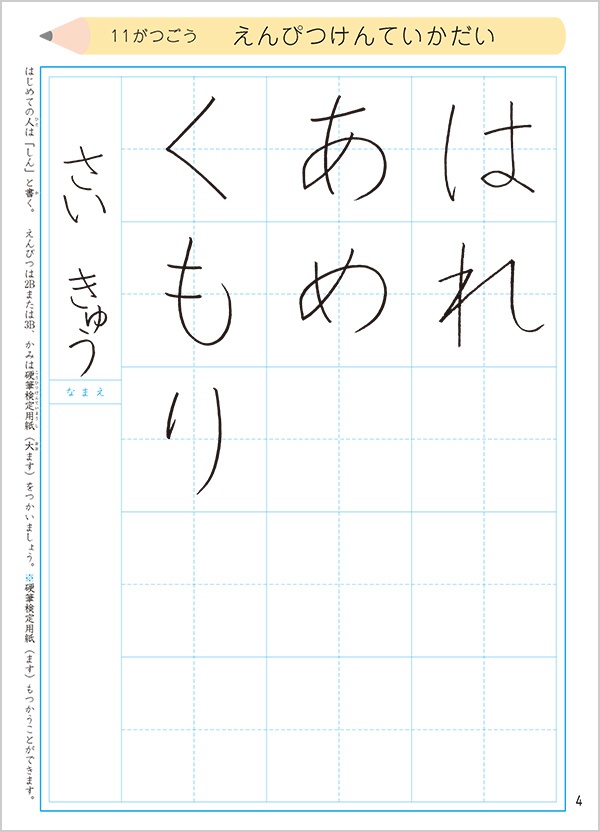 11がつごう えんぴつけんていかだい
はれ
あめ
くもり
さい きゅう
なまえ
はじめての人は「しん」と書く。 えんぴつは2Bまたは3B、かみは硬筆検定用紙(大ます)をつかいましょう。※硬筆検定用紙(ます)もつかうことができます。
4